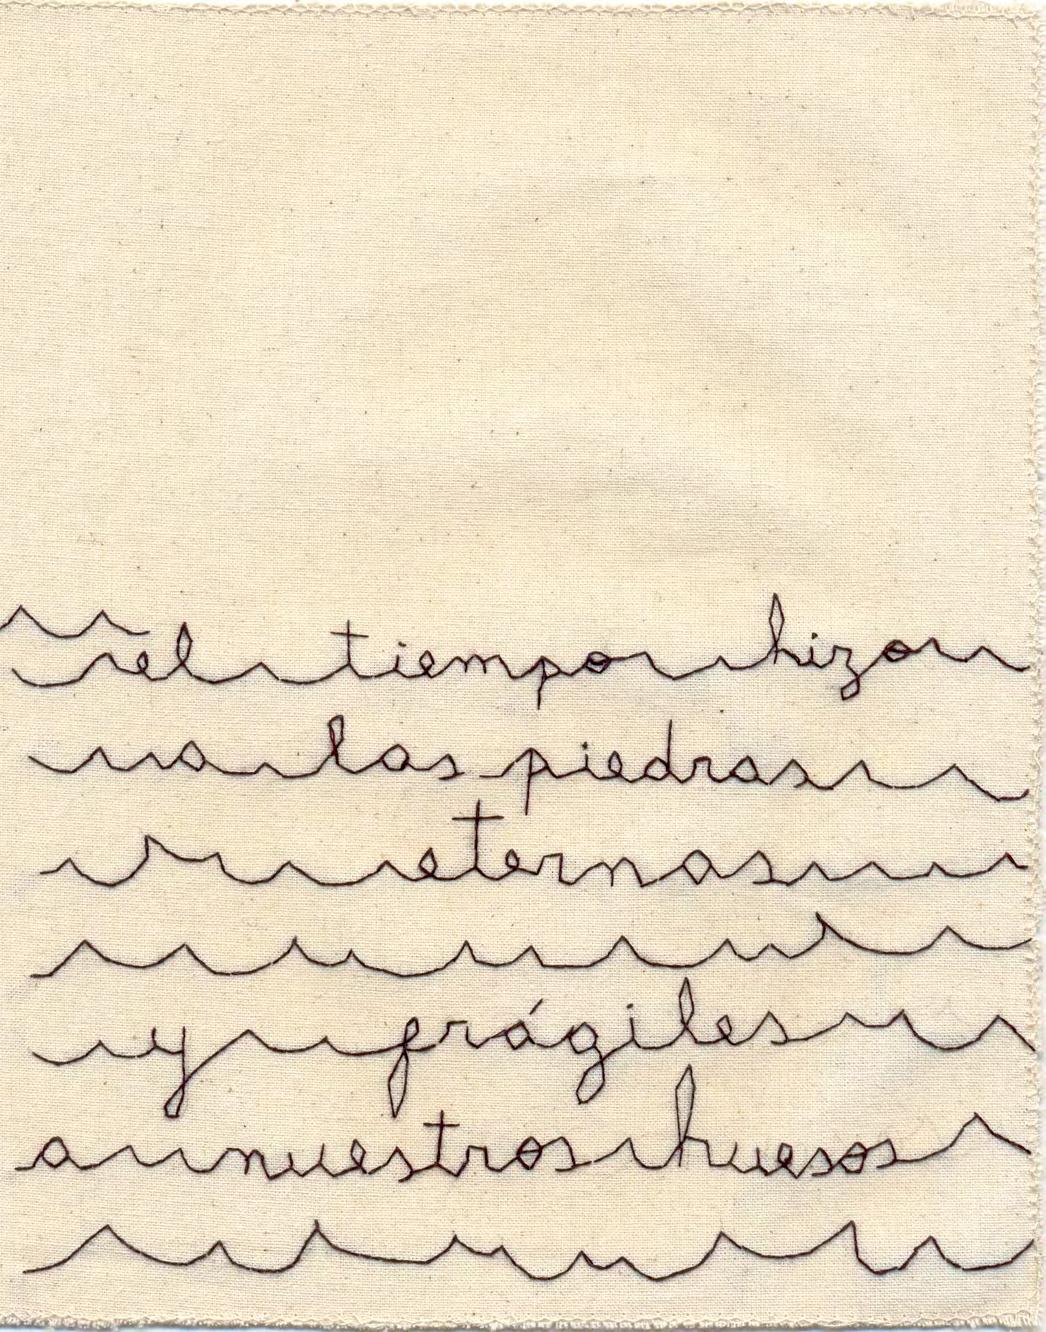 el tiempo hizo
a las piedras
eternas
y frágiles
a nuestros huesos